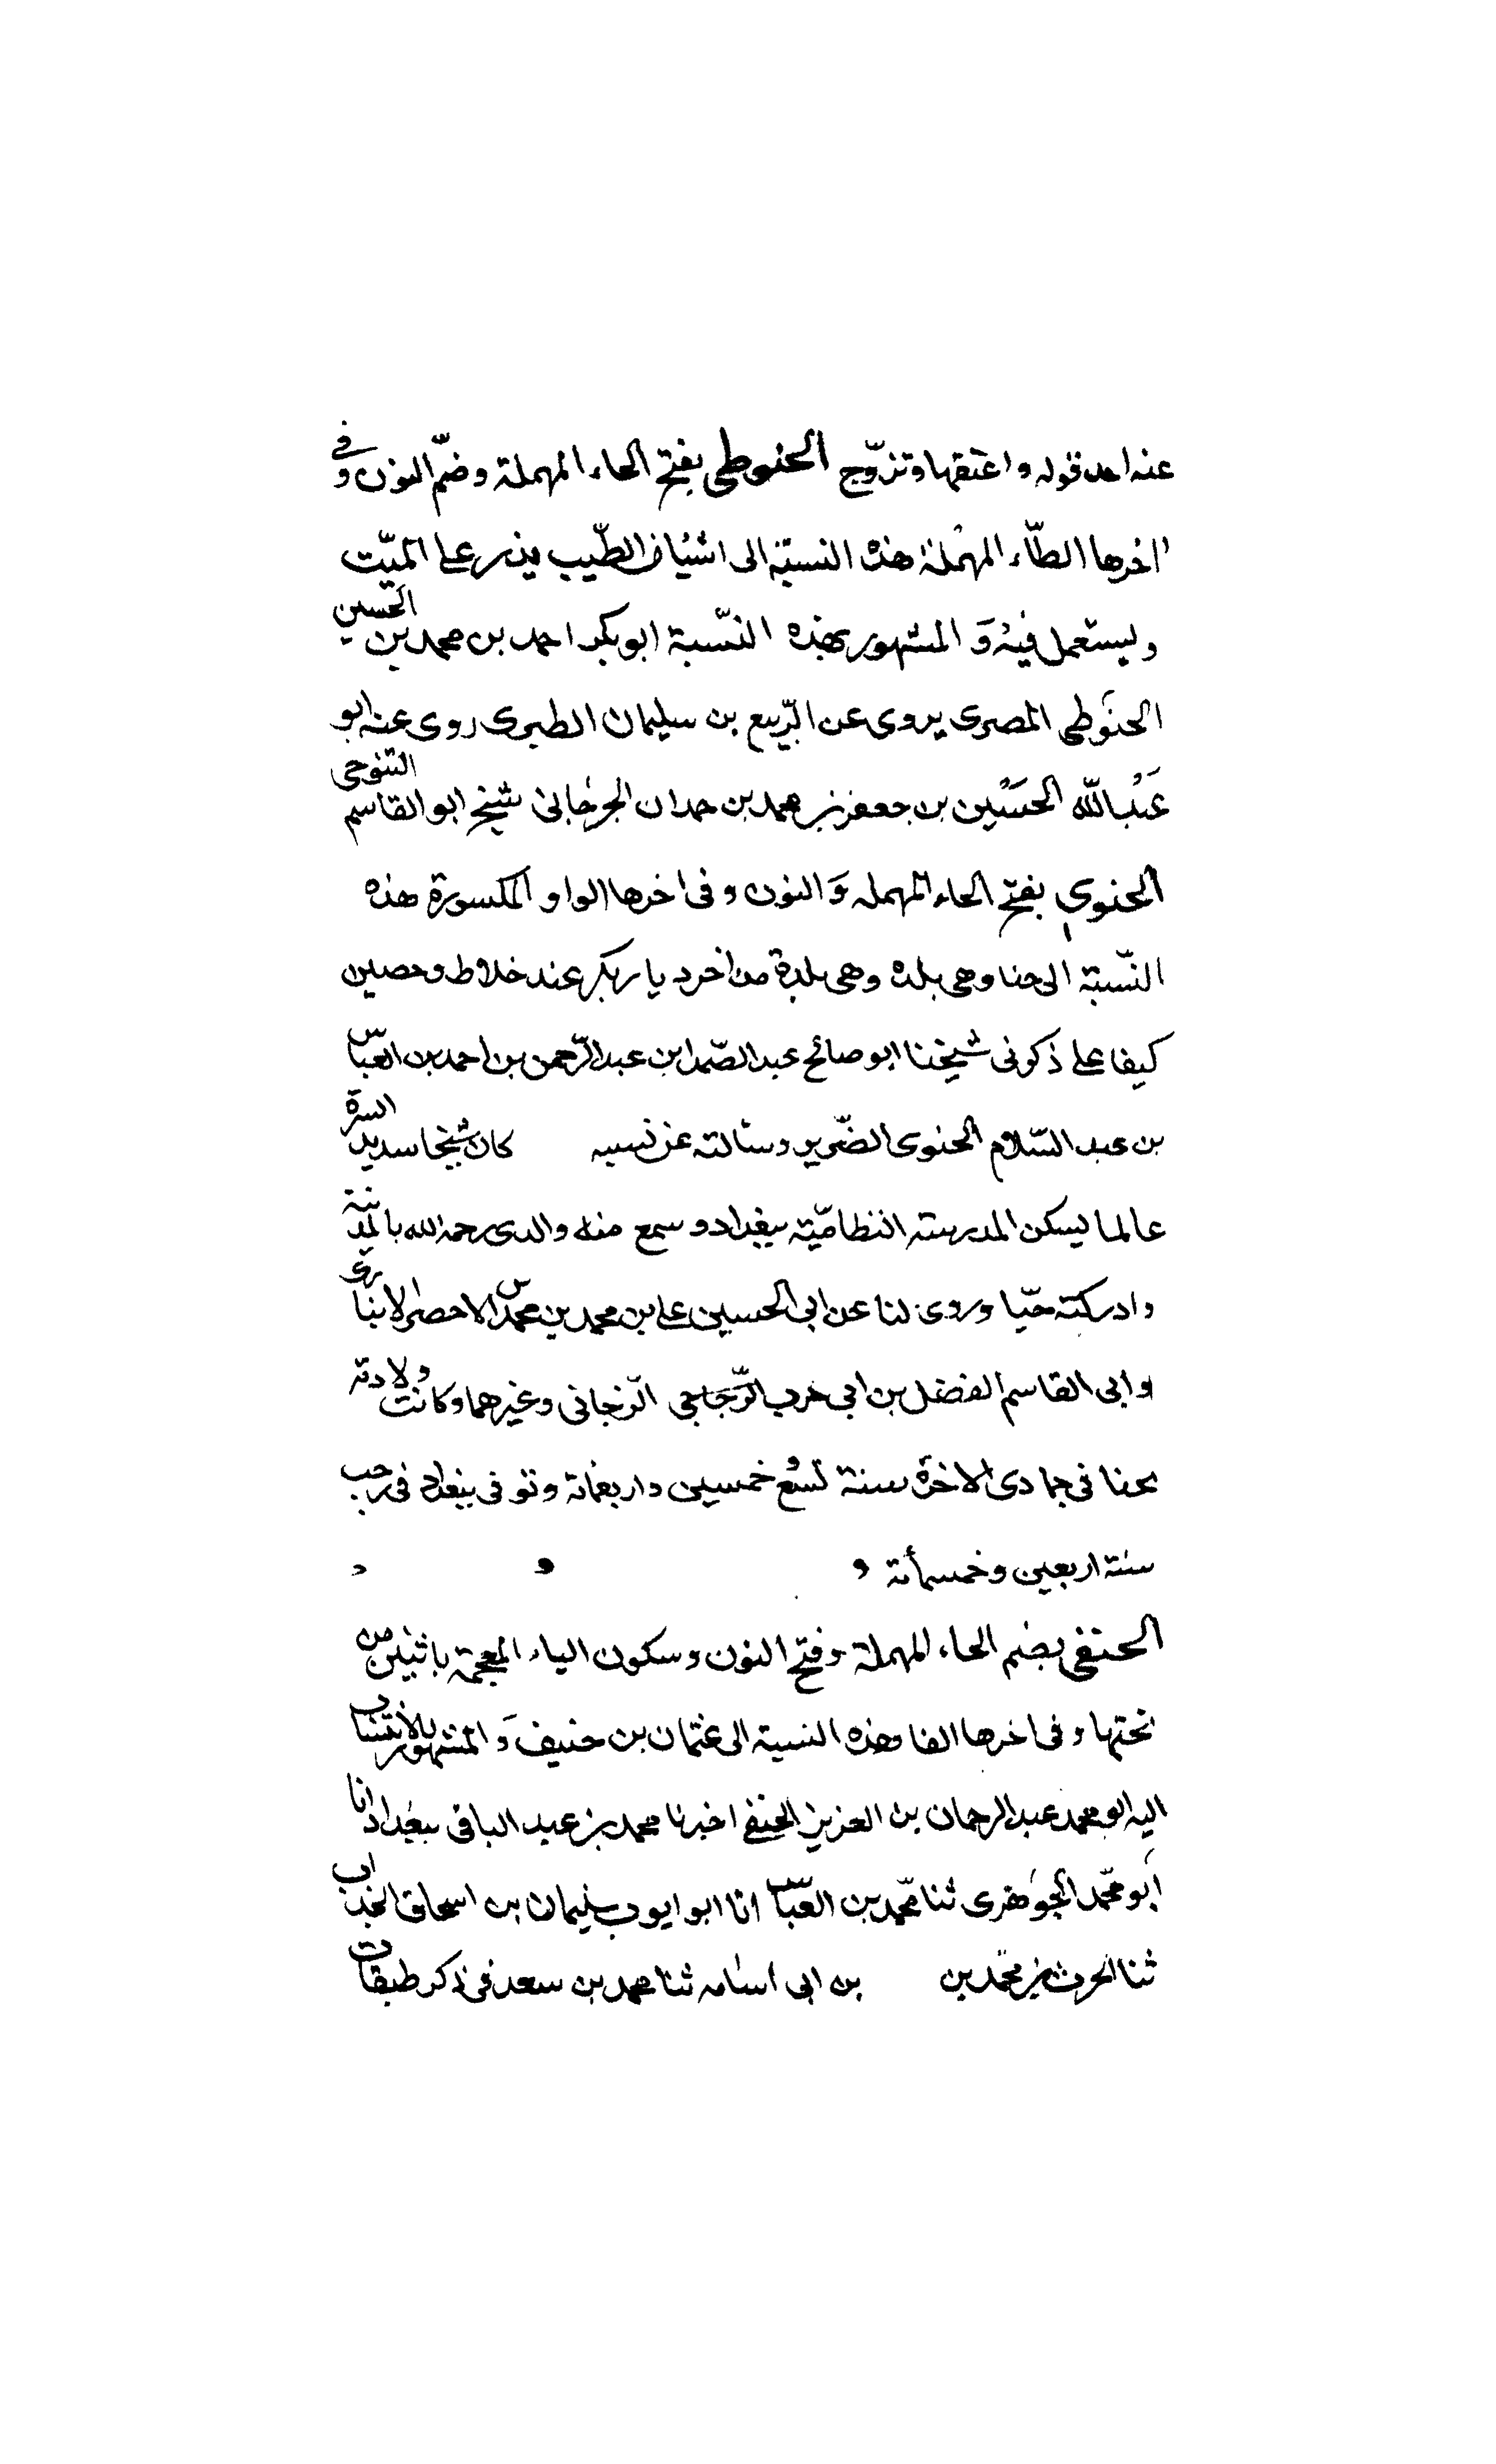 عنه احد قوله واعتقها وتزوّج الحنوطى بفتح الحاء المهملة وضمّ النون وفى
اخرها الطّاء المهملة هذه النسبة الى اشياف الطّيب يذر على الميّت
ويستعمل فيه وَ المشهور بهذه النّسبة ابو بكر احمد بن محمد بن الحسين
الحنوطى المصرى يروى عن الرّبيع بن سليمان الطبرى روى عنه ابو
عَبْد اللّه الحسَيْن بن جعفر بن محمد بن حمدان الجرجانى شيخ ابو القاسم التنوحى
الحنوي بفتح الحاء المهمله وَ النون وفى اخرها الواو المكسورة هذه
النّسبة الى حنا وهى بلده وهى بلدة من اخر ديار بكر عند خلاط وحصين
كيفا على ذكونى شيخنا ابو صالح عبد الصّمد ابن عبد الرّحمن بن احمد بن العبّاس
بن عبد السّلام الحنوى الضّرير وسالته عن نسبه كان شيخا سديد السرة
عالما يسكن المدرسته النظاميّة ببغداد و سمع منه والدى رحمه الله بالمدينة
وادركته حيّا وروى لنا عن ابى الحسين على بن محمد بن محمد الاحضر الانبارى
وابى القاسم الفضل بن ابى حرب الزّجاجى الزنجانى وغيرهما وكانت ولادته
بحنا فى جمادى الاخرة سنة تسع خمسين واربعمائة وتوفى ببغداد فى رجب
سنة اربعين وخمسمأئة
الحنفى بضم الحاء المهملة وفتح النون وسكون الياء المعجمة باثنين من
تحتها وفى اخرها الفا وهذه النسبة الى عثمان بن حنيف وَ المشهور بالانتساب
اليه ابو محمد عبد الرحمان بن العزيز الحنفى اخبرنا محمد بن عبد الباقى ببغداد انا
أبو محمّد الجوهرى ثنا محمّد بن العبّاس انا ابو ايوب سليمان بن اسحاق الجلاب
ثنا الحرث بن محمّد بن بن ابى اسامه ثنا محمد بن سعد فى ذكر طبقات